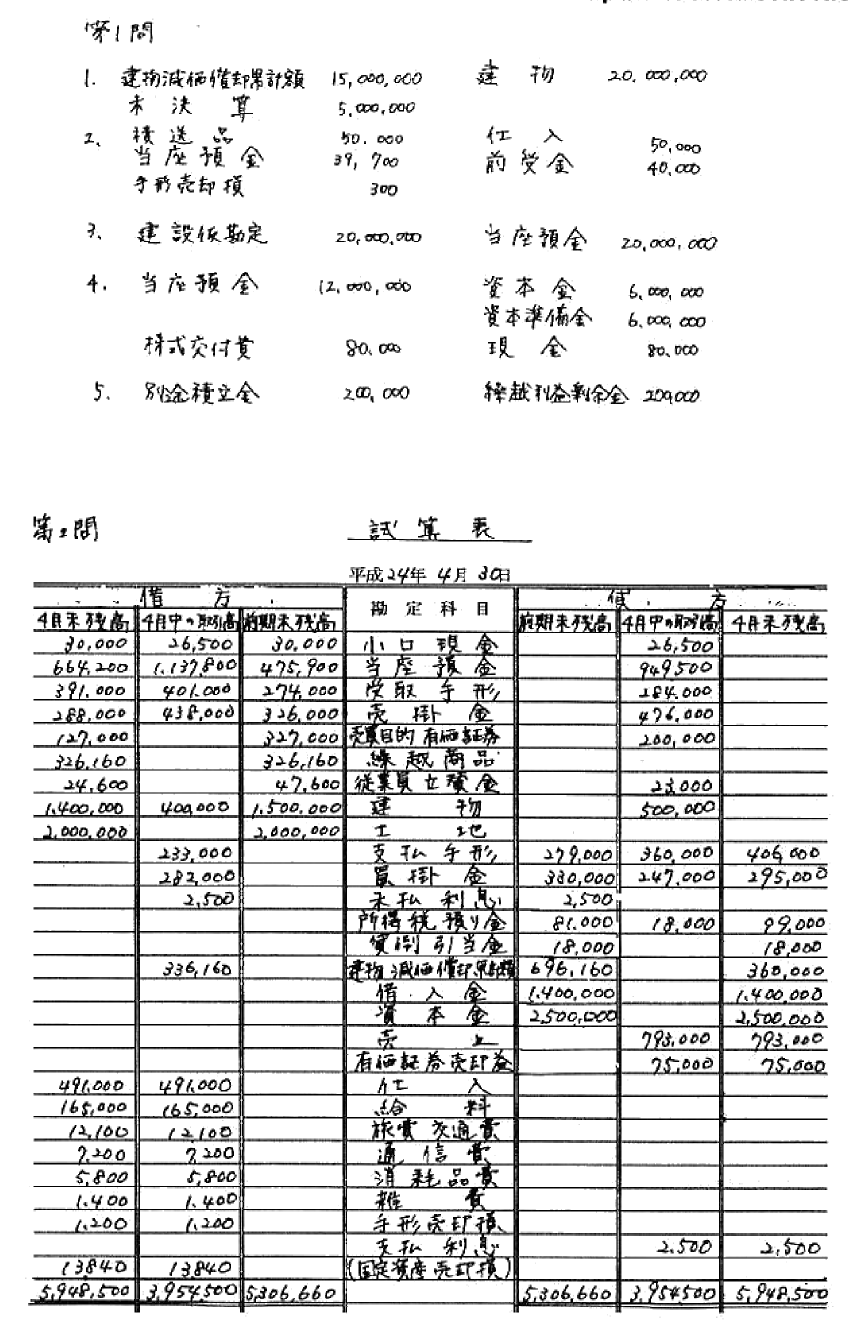 第1問
1. 建物減価償却累計額 15,000,000 建物 20,000,000
未決算 5,000,000
2. 積送品 50,000 仕入 50,000
当座預金 39,700 前受金 40,000
手形売却損 300
3. 建設仮勘定 20,000,000 当座預金 20,000,000
4. 当座預金 12,000,000 資本金 6,000,000
資本準備金 6,000,000
株式交付費 80,000 現金 80,000
5. 別途積立金 200,000 繰越利益剰余金 200,000
第2問 試算表
平成24年 4月 30日
借方 勘定科目 貸方
4月末残高 4月中の取引高 前期末残高 前期末残高 4月中の取引高 4月末残高
30,000 26,500 30,000 小口現金 26,500
664,200 1,137,800 475,900 当座預金 949,500
391,000 401,000 274,000 受取手形 284,000
288,000 438,000 326,000 売掛金 476,000
127,000 327,000 売買目的有価証券 200,000
326,160 326,160 繰越商品
24,600 47,600 従業員立替金 23,000
1,400,000 400,000 1,500,000 建物 500,000
2,000,000 2,000,000 土地
233,000 支払手形 279,000 360,000 406,000
282,000 買掛金 330,000 247,000 295,000
2,500 未払利息 2,500
所得税預り金 81,000 18,000 99,000
貸倒引当金 18,000 18,000
336,160 建物減価償却累計額 696,160 360,000
借入金 1,400,000 1,400,000
資本金 2,500,000 2,500,000
売上 793,000 793,000
有価証券売却益 75,000 75,000
491,000 491,000 仕入
165,000 165,000 給料
12,100 12,100 旅費交通費
7,200 7,200 通信費
5,800 5,800 消耗品費
1,400 1,400 雑費
1,200 1,200 手形売却損
支払利息 2,500 2,500
13840 13840 (固定資産売却損)
5,948,500 3,954,500 5,306,660 5,306,660 3,954,500 5,948,500